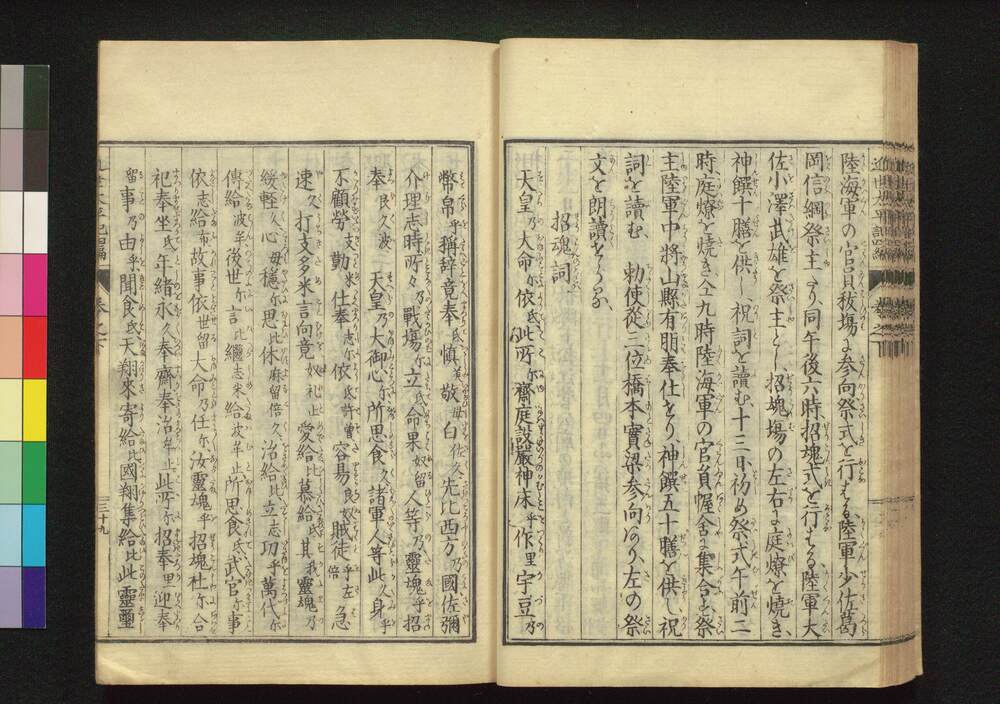 陸海軍の官員秡塲に参向祭式を行はる、陸軍少佐葛
岡信綱祭主より同午後六時招魂式を行はる、陸軍大
佐小澤武雄を祭主とし、招魂塲の左右に庭燎を燒き、
神饌十膳を供し、祝詞を讀む、十三日初め祭式午前二
時庭燎を燒き、仝九時陸海軍の官員幄舍に集合し、祭
主陸軍中將山縣有朋奉仕をり、神饌五十膳を供し、祝
詞を讀む、 勅使從三位橋本實梁参向あり左の祭
文を朗讀せらる、
招魂詞
天皇乃大命尓依氐此所尓齋庭設嚴神床乎作里宇豆乃
幣帛乎稱辞竟奉氐慎敬母白佐久先比西方乃國佐彌
介理志時所々乃戰塲尓立氐命果奴留人等乃靈魂乎招
奉良久波 天皇乃大御心尓所思食久諸軍人等此久身乎
不顧勞支勤米仕奉志尓依氐許曾容易良奴賊徒乎左倍急
速久打支多米言向竟奴礼止愛給比慕給氐其我靈魂乃
緩輕久心毋穩尓思比休麻留倍久治給比立志功乎萬代尓
傳給波牟後世尓言比繼志米給波牟止所思食氐武官尓事
依志給布故事依世留大命乃任尓汝靈魂乎招魂社尓合
祀奉坐氐年緒永久奉齋奉治牟止此所尓招奉里迎奉
留事乃由乎聞食氐天翔來寄給比國翔集給比此靈璽
近世太平記四編
卷之下
三十九